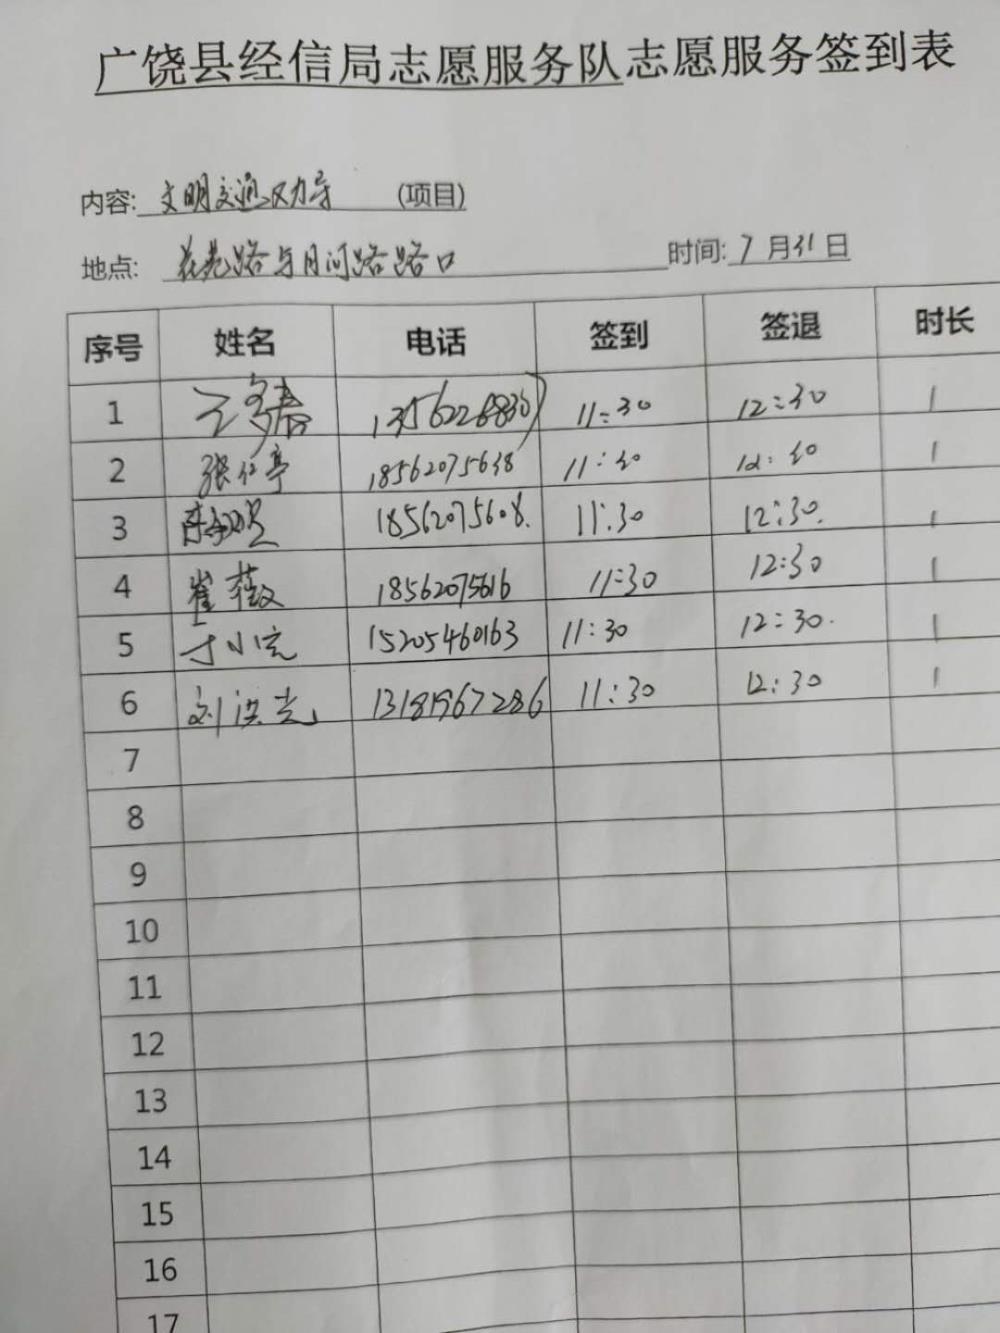 广饶县经信局志愿服务队志愿服务签到表
内容: 文明交通劝导 (项目)
地点: 花苑路与月河路路口 时间: 7月31日
序号 姓名 电话 签到 签退 时长
1 11:30 12:30 1
2 张仁亭 18562075638 11:30 12:30 1
3 18562075608. 11:30 12:30. 1
4 崔薇 18562075616 11:30 12:30 1
5 15205460163 11:30 12:30. 1
6 刘洪光 13181967286 11:30 12:30 1
7
8
9
10
11
12
13
14
15
16
17